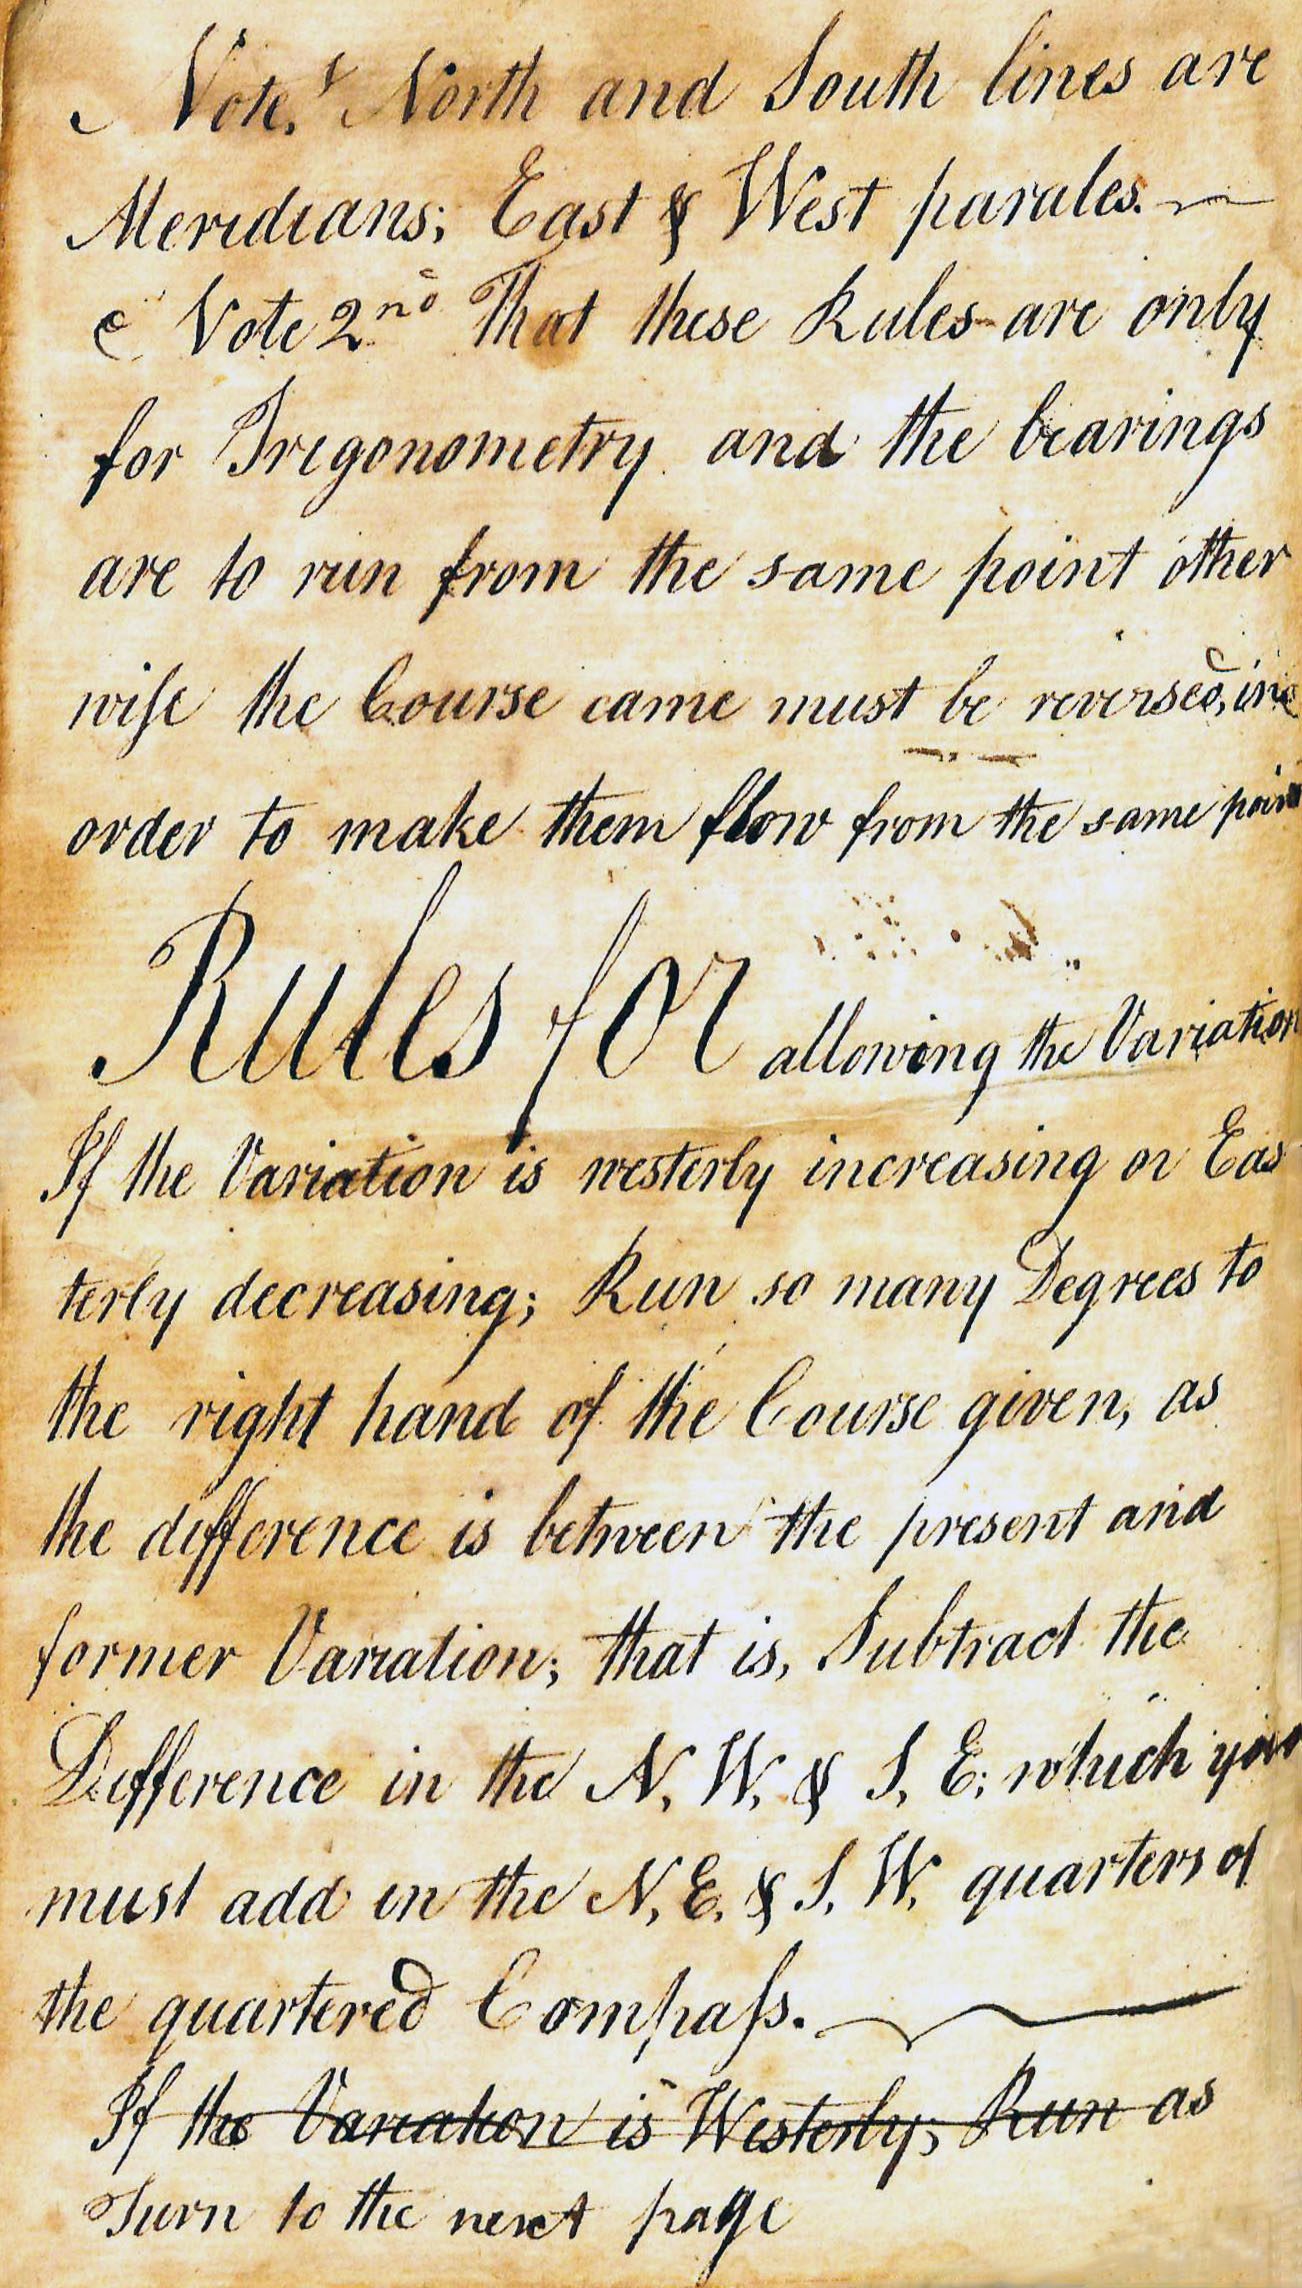 Note, North and South lines are
Meridians; East & West parales.
Note 2nd That these Rules are only
for Trigonometry and the bearings
are to run from the same point other
wiſe the Course came must be reversed, in
order to make them flow from the same point
Rules for allowing the Variation
If the Variation is westerly increasing or Eas
terly decreasing; Run so many Degrees to
the right hand of the Course given, as
the difference is between the present and
former Variation; that is, Subtract the
Difference in the N. W. & S. E. which you
must add in the N. E. & S. W. quarters of
the quartered Compaſs.
If the Variation is Westerly; Run as
Turn to the next page